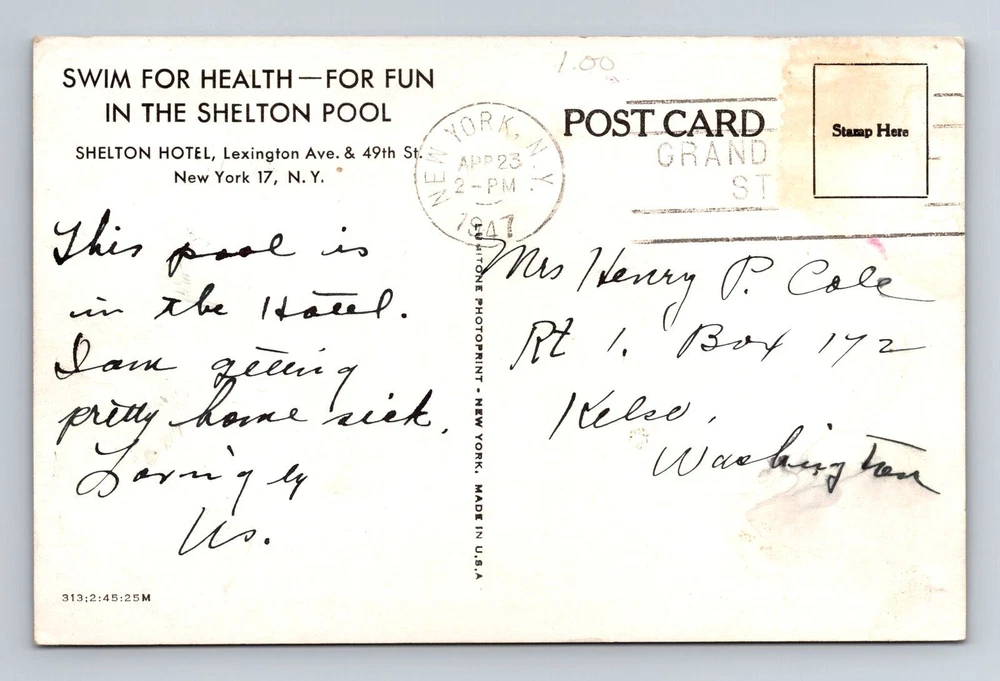 SWIM FOR HEALTH—FOR FUN
IN THE SHELTON POOL
SHELTON HOTEL, Lexington Ave. & 49th St.
New York 17, N. Y.
This pool is
in the Hotel.
I am getting
pretty home sick.
Lovingly
Us.
313;2:45:25M
LUMITONE PHOTOPRINT - NEW YORK. MADE IN U.S.A
1.00
NEW YORK, N.Y.
APR 23
2-PM
1947
POST CARD
GRAND
ST
Stamp Here
Mrs Henry P. Cole
Rt 1. Box 172
Kelso,
Washington